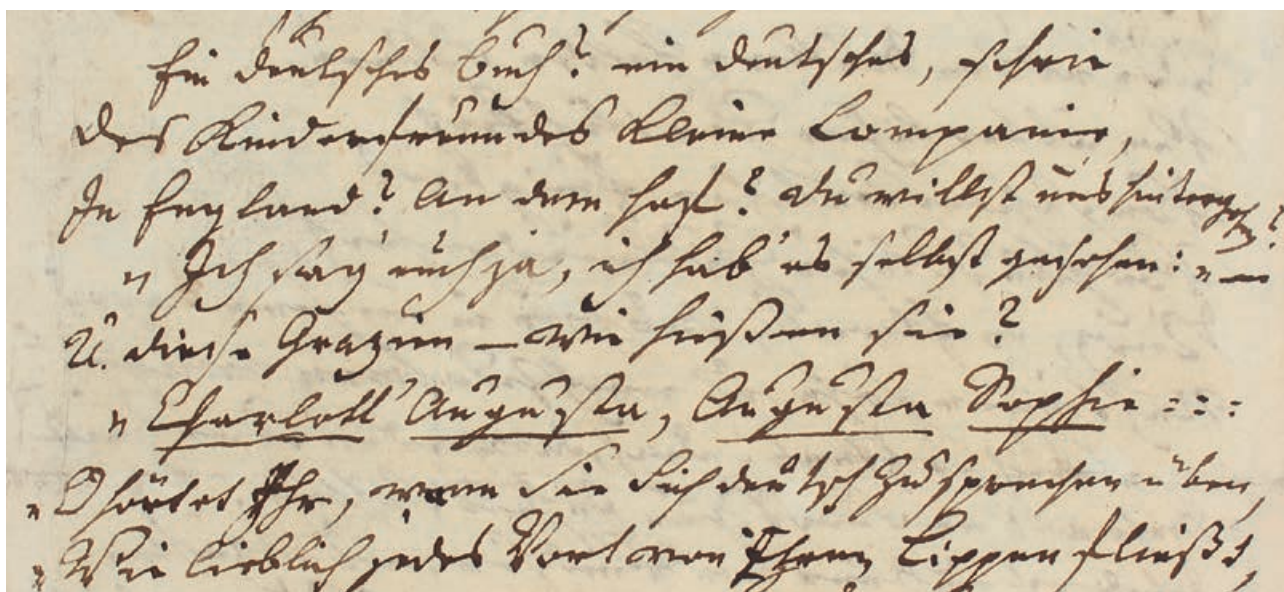 Ein deutsches Buch? ein deutsches, schrie
Des Kinderfreundes kleine Companie,
In England? An dem Hof? du willst uns hintergehn?
" Ich sag' euch ja, ich hab' es selbst gesehen: " —
U. diese Grazien — wie hießen sie?
" Charlott' Augusta, Augusta Sophie : : :
" O hörtet Ihr, wenn Sie Sich deutsch zu sprechen üben,
" Wie lieblich jedes Wort von Ihren Lippen fließt,